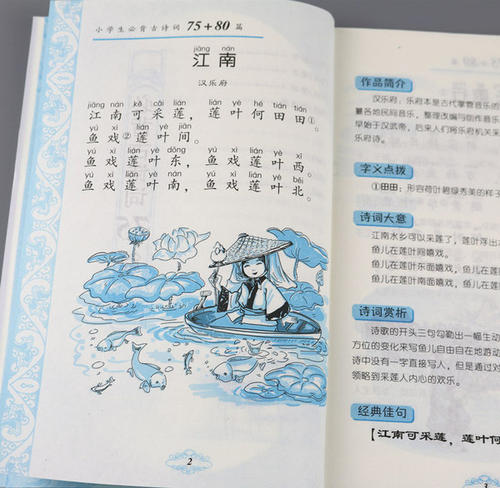 小学生必背古诗词 75+80 篇
jiāng nán
江南
汉乐府
jiāng nán kě cǎi lián lián yè hé tián tián
江南可采莲，莲叶何田田①。
yú xì lián yè jiān
鱼戏②莲叶间。
yú xì lián yè dōng yú xì lián yè xī
鱼戏莲叶东，鱼戏莲叶西。
yú xì lián yè nán yú xì lián yè běi
鱼戏莲叶南，鱼戏莲叶北。
2
作品简介
汉乐府：乐府本是古代掌管音乐
纂各地民间音乐，整理改编与创作音乐
早始于汉武帝，后来人们将乐府机关
乐府诗。
字义点拨
①田田：形容荷叶碧绿秀美的样子
诗词大意
江南水乡可以采莲了，莲叶浮出
鱼儿在莲叶间嬉戏。
鱼儿在莲叶东面嬉戏，
鱼儿在莲叶南面嬉戏，
诗词赏析
诗歌的开头三句勾勒出一幅生动
方位的变化来写鱼儿自由自在地游动
诗中没有一字直接写人，但是通过对
领略到采莲人内心的欢乐。
经典佳句
【江南可采莲，莲叶何
3